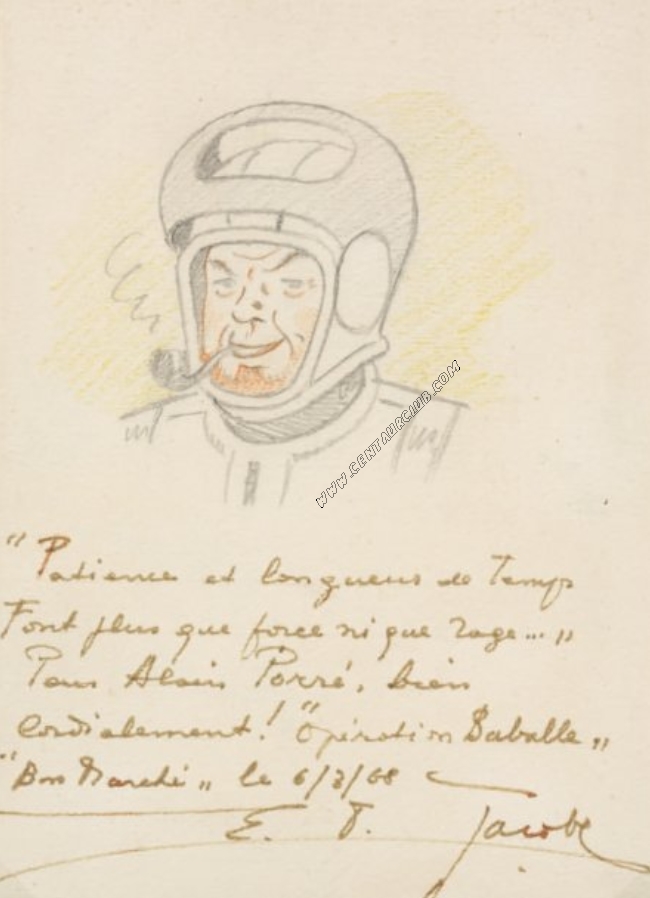 WWW.CENTAURCLUB.COM
"Patience et longueur de Temps
Font plus que force ni que rage..."
Pour Alain Porré, bien
cordialement! "Opération Baballe"
"Bon Marché" le 6/3/68
E. P. Jacobs